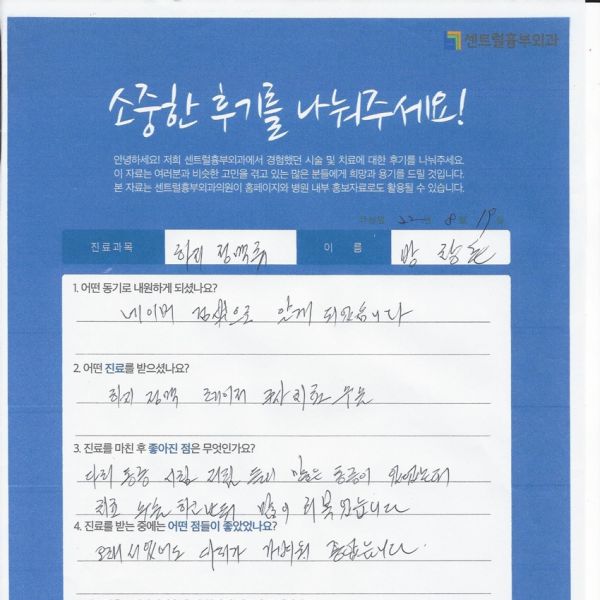 센트럴흉부외과
소중한 후기를 나눠주세요!
안녕하세요! 저희 센트럴흉부외과에서 경험했던 시술 및 치료에 대한 후기를 나눠주세요.
이 자료는 여러분과 비슷한 고민을 겪고 있는 많은 분들에게 희망과 용기를 드릴 것입니다.
본 자료는 센트럴흉부외과의원이 홈페이지와 병원 내부 홍보자료로도 활용될 수 있습니다.
22년 8월 19일
진료과목 하지 정맥류 이 름 방
1. 어떤 동기로 내원하게 되셨나요?
네이버 검색으로 알게 되었습니다
2. 어떤 진료를 받으셨나요?
하지 정맥 레이저
3. 진료를 마친 후 좋아진 점은 무엇인가요?
다리 통증 시림 저림 등의 많은 통증이 있었는데
치료 하고 많이 회복 되었습니다
4. 진료를 받는 중에는 어떤 점들이 좋았었나요?
오래 서있어도 다리가 가벼워 좋았습니다.